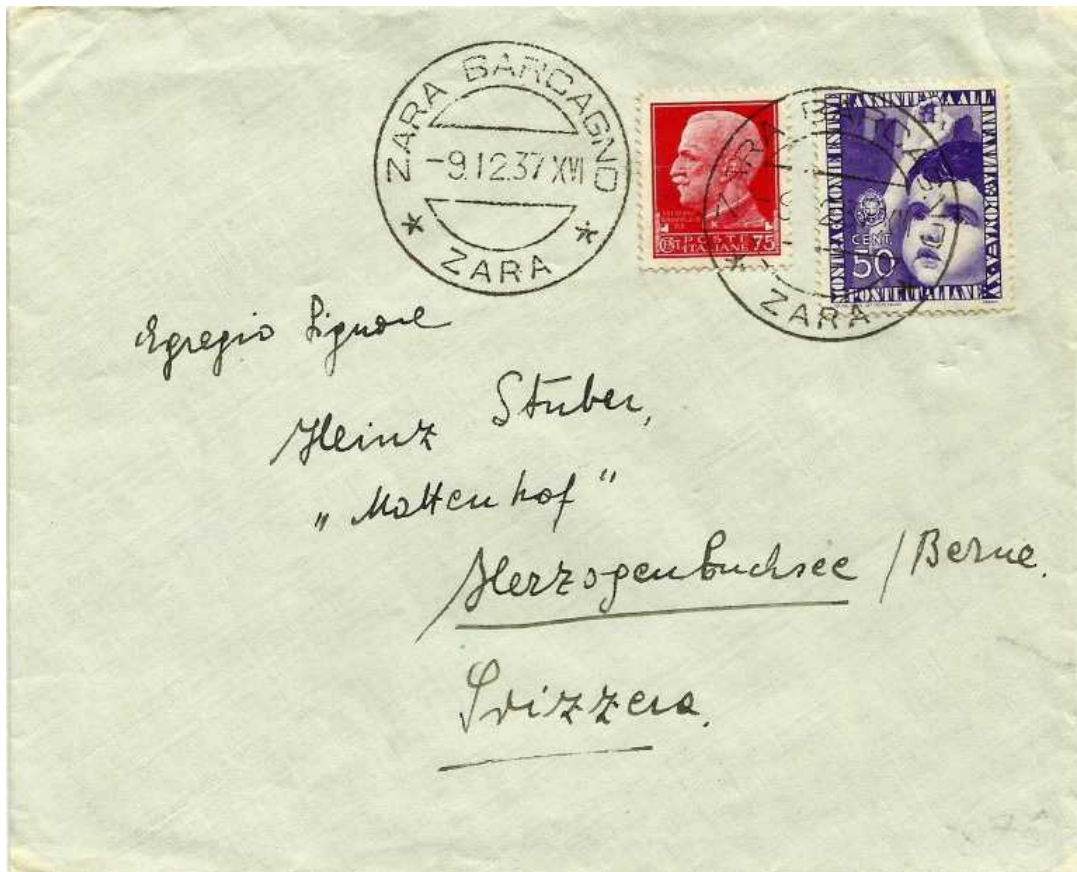 ZARA BARCAGNO
-9.12.37 XVI
* ZARA *
POSTE
ITALIANE 75
ZARA BARCA
CENT.
50
POSTE ITALIANE
* ZARA *
Egregio Signore
Heinz Stuber,
„Mattenhof"
Herzogenbuchsee / Berne.
Svizzera.